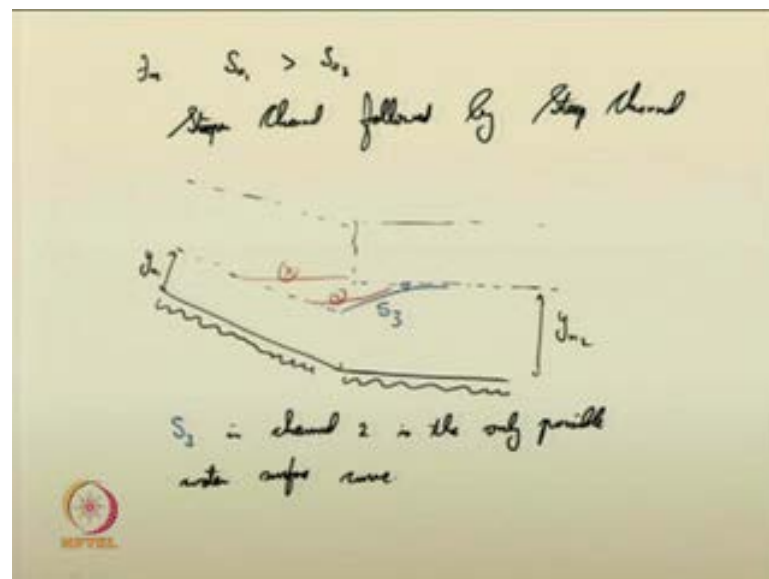 S₀₁ > S₀₂
Steeper channel followed by Steep channel
yₙ₁
S₃
yₙ₂
S₃ in channel 2 is the only possible
water surface curve
NPTEL